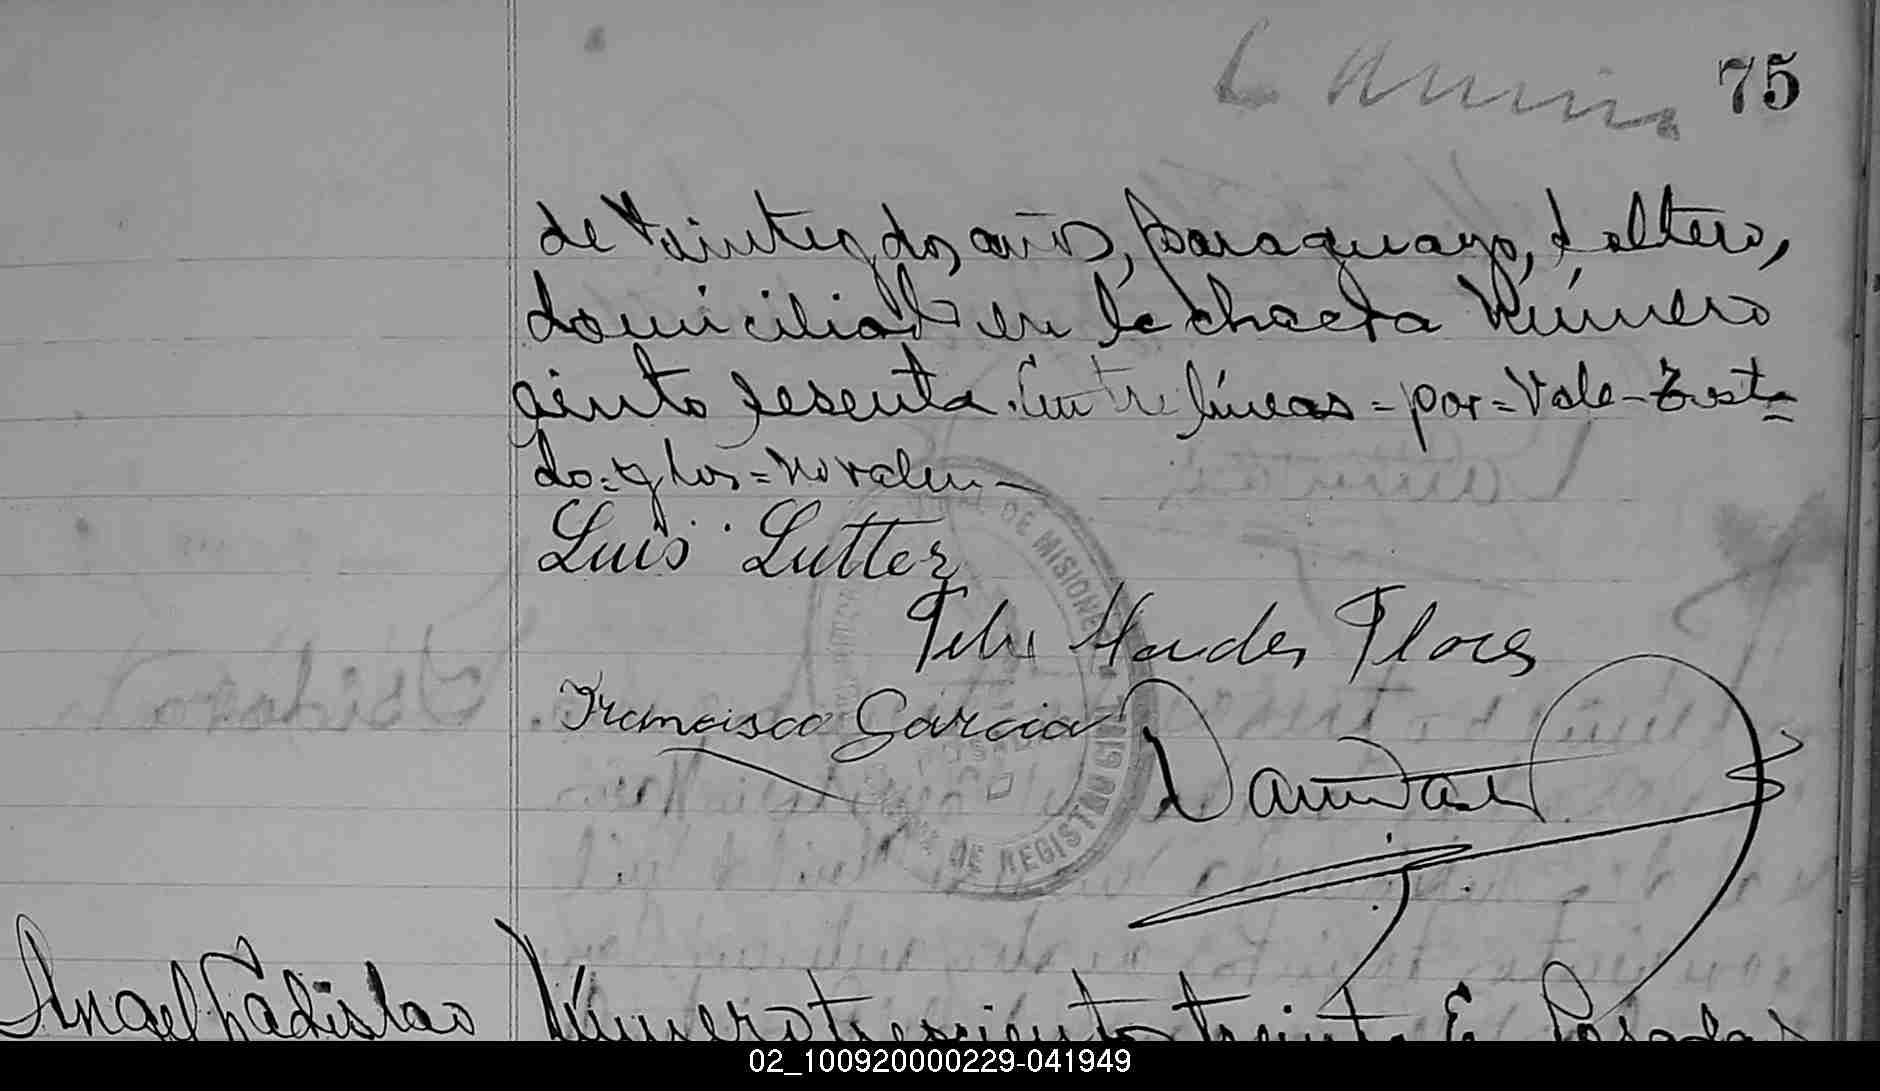 75
de veintiydos años, paraguayo, soltero,
domiciliado en la chacra Número
ciento sesenta. Entre líneas = por = Vale - Testa=
do = y los = no valen -
Luis Lutter
Felix Flores
Francisco Garcia
DE MISIONES
REGISTRO CIVIL
Angel Ladislao
Número trescientos treinta En Posadas
02_100920000229-041949